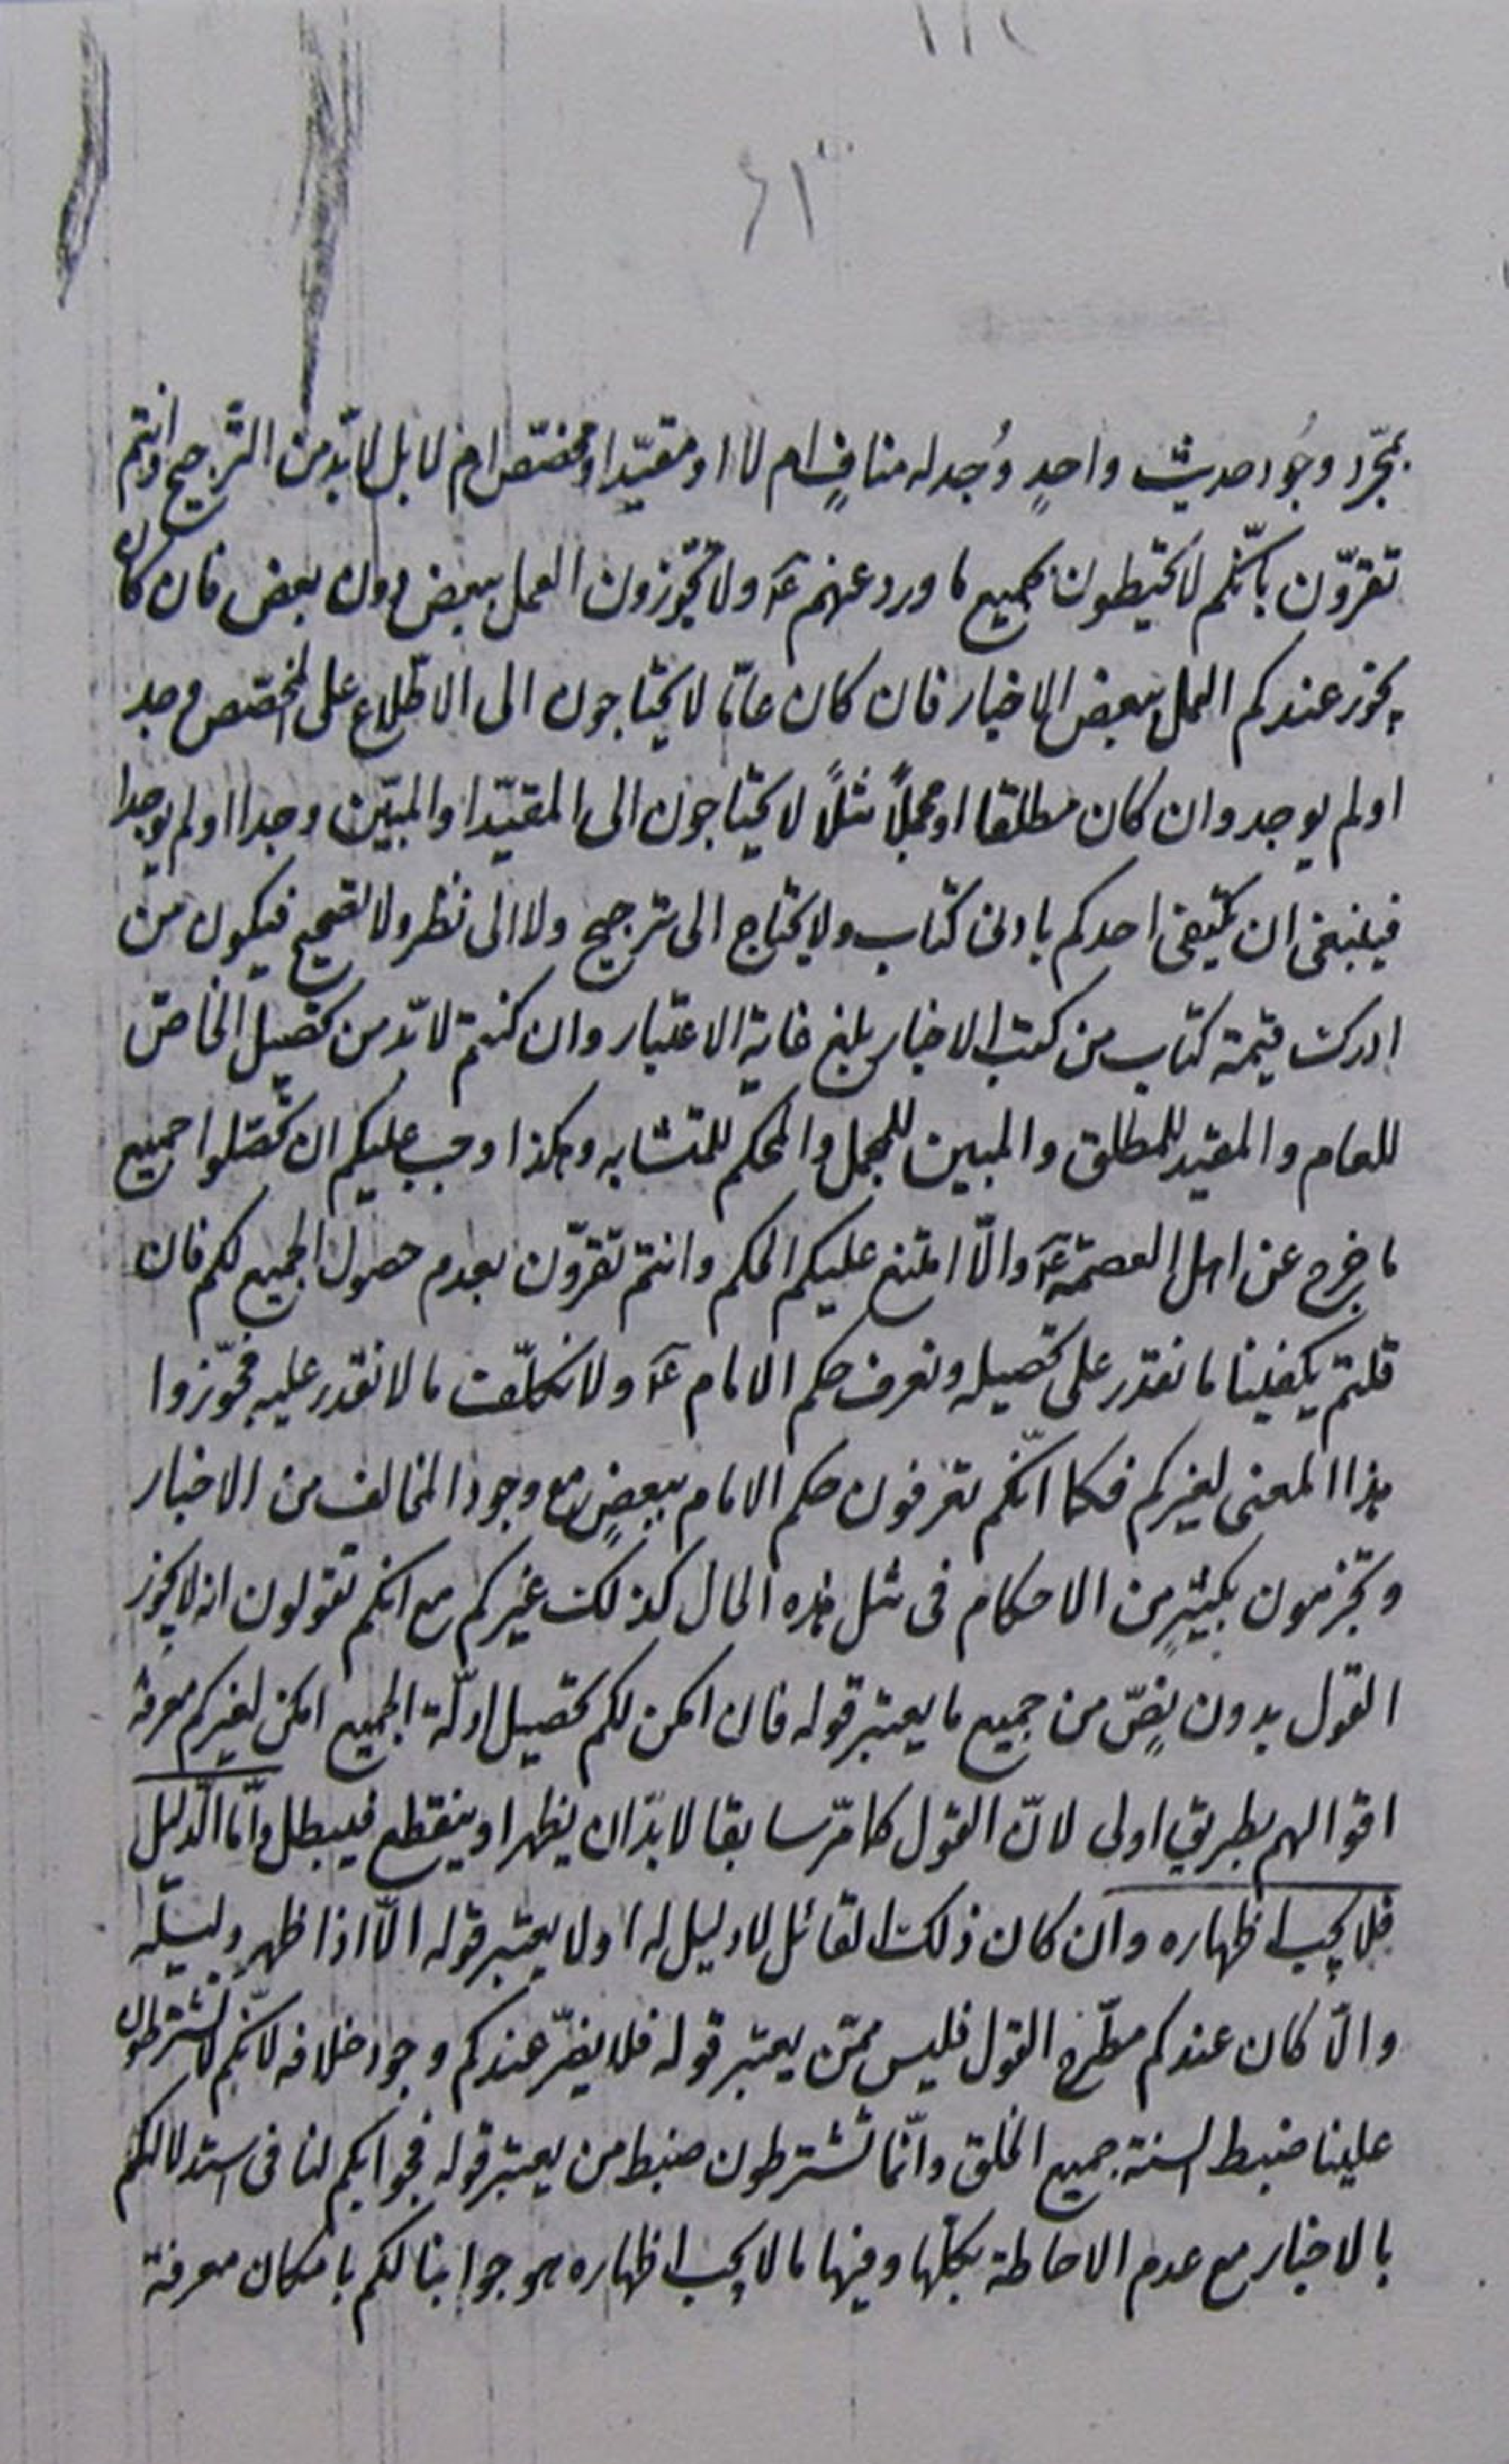 بمجّرد وجُود حديث واحدٍ وُجد له منافٍ ام لا او مقيّدا ومخصّص ام لا بل لا بّد من التّرجيح وانتم
تقرّون بانّكم لا تحيطون بجميع ما ورد عنهم عۤ ولا تجّوزون العمل ببعض دون بعض فان كان
يجوز عندكم العمل ببعض الاخبار فان كان عامّا لا يحتاجون الى الاطّلاع على المخصّص وجد
اولم يوجد وان كان مطلقا او مجملًا مثلًا لا يحتاجون الى المقيّد او المبيّن وجدا اولم يوجدا
فينبغى ان يكتفى احدكم بادنى كتاب ولا يحتاج الى ترجيح ولا الى نظر ولا تصحيح فيكون من
ادرك قيمة كتاب من كتب الاخبار بلغ غاية الاعتبار وان كنتم لا بّد من تحصيل الخاصّ
للعام والمقيد للمطلق والمبين للمجمل والمحكم للمتشابه وهكذا وجب عليكم ان تحصّلوا جميع
ما خرج عن اهل العصمة عۤ والّا امتنع عليكم الحكم وانتم تقرّون بعدم حصول الجميع لكم فان
قلتم يكفينا ما نقدر على تحصيله ونعرف حكم الامام عۤ ولا نكلّف ما لا نقدر عليه فجّوزوا
هذا المعنى لغيركم فكما انّكم تعرفون حكم الامام ببعضٍ مع وجود المخالف من الاخبار
وتجزمون بكثيرٍ من الاحكام فى مثل هذه الحال كذلك غيركم مع انكم تقولون انه لا يجوز
القول بدون نصٍّ من جميع ما يعتبر قوله فان امكن لكم تحصيل ادلّة الجميع امكن لغيركم معرفة
اقوالهم بطريقٍ اولى لانّ القول كما مّر سابقا لا بدّ ان يظهر او ينقطع فيبطل وامّا الدّليل
فلا يجب اظهاره وان كان ذلك القائل لا دليل له او لا يعتبر قوله الّا اذا ظهر دليله
والّا كان عندكم مطّرح القول فليس ممّن يعتبر قوله فلا يضّر عندكم وجود خلافه لانّكم لا تشترطون
علينا ضبط السنة جميع الخلق وانّما تشترطون ضبط من يعتبر قوله فجوابكم لنا فى استدلالكم
بالاخبار مع عدم الاحاطة بكلّها وفيها ما لا يجب اظهاره هو جوابنا لكم بامكان معرفة